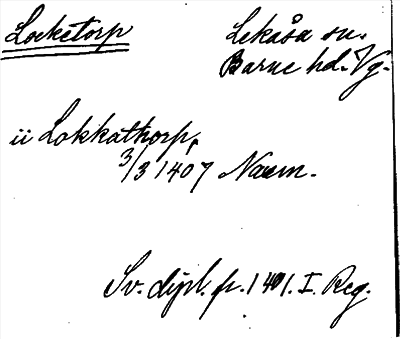 Locketorp
Lekåsa sn.
Barne hd. Vg.
ii Lokkathorp,
3/3 1407 Naum.
Sv. dipl. fr. 1401. I. Reg.